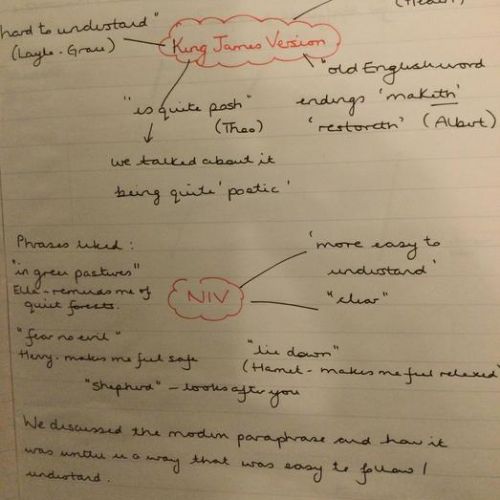 (Heather)
hard to understand"
(Layla-Grace)
King James Version
"old English word
endings 'maketh'
'restoreth' (Albert)
"is quite posh"
(Theo)
we talked about it
being quite 'poetic'
Phrases liked:
"in green pastures"
Ella - reminds me of
quiet forests.
NIV
'more easy to
understand'
"clear"
"fear no evil"
Henry - makes me feel safe
"lie down"
(Hamet - makes me feel relaxed"
"shepherd" - looks after you
We discussed the modern paraphrase and how it
was written in a way that was easy to follow /
understand.